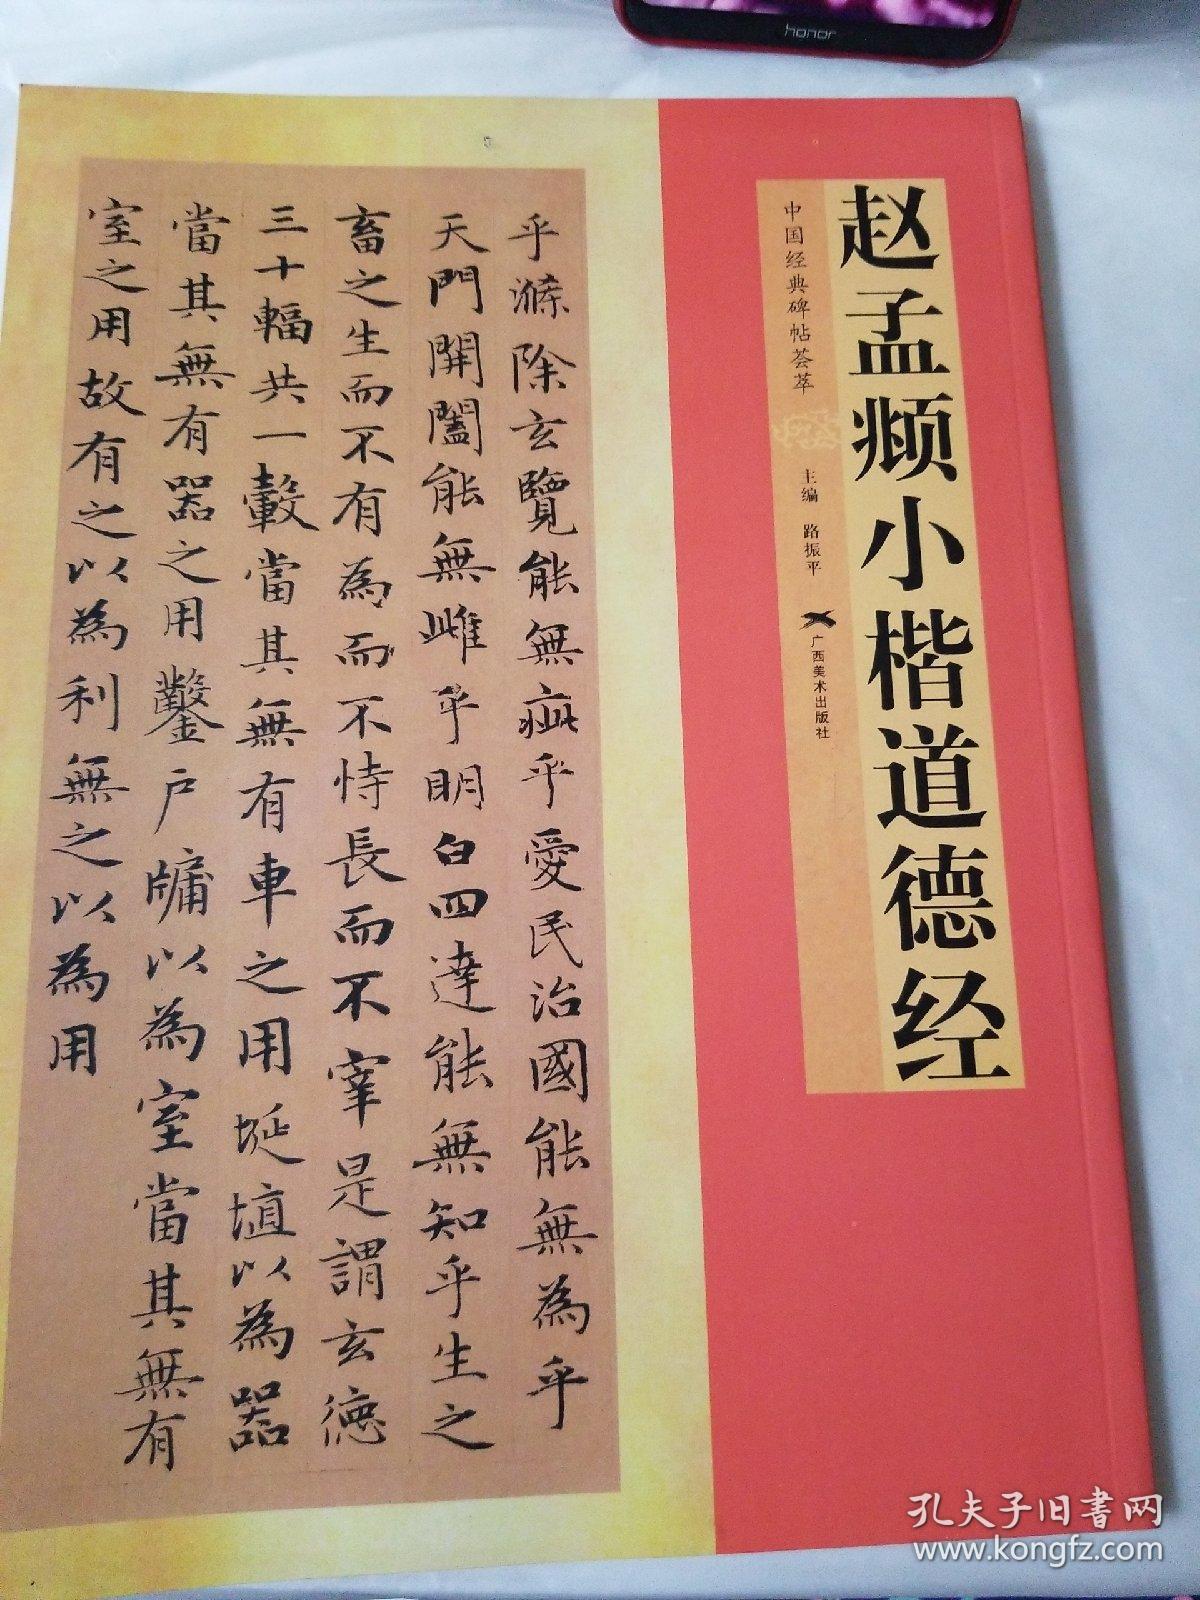 honor
赵孟頫小楷道德经
中国经典碑帖荟萃
主编 路振平
广西美术出版社
乎滌除玄覽能無疵乎愛民治國能無為乎
天門開闔能無雌乎明白四達能無知乎生之
畜之生而不有為而不恃長而不宰是謂玄德
三十輻共一轂當其無有車之用埏埴以為器
當其無有器之用鑿戶牖以為室當其無有
室之用故有之以為利無之以為用
孔夫子旧书网
www.kongfz.com